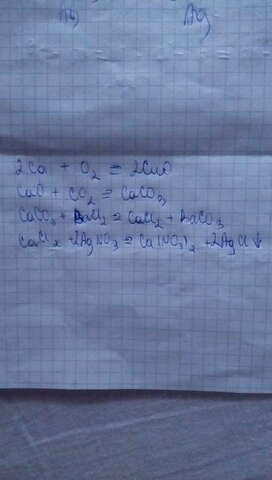 Ag Ag
2Ca + O2 = 2CaO
CaO + CO2 = CaCO3
CaCO3 + BaCl2 = CaCl2 + BaCO3
CaCl2 + 2AgNO3 = Ca(NO3)2 + 2AgCl↓